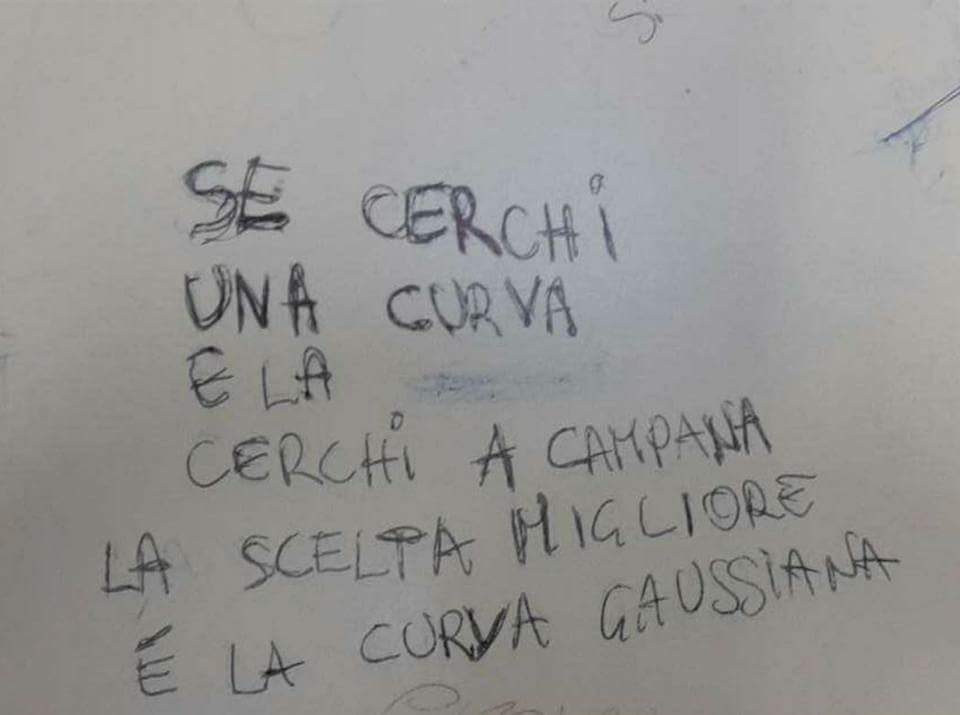 SE CERCHi
UNA CURVA
E LA
CERCHi A CAMPANA
LA SCELTA MIGLIORE
É LA CURVA GAUSSiANA